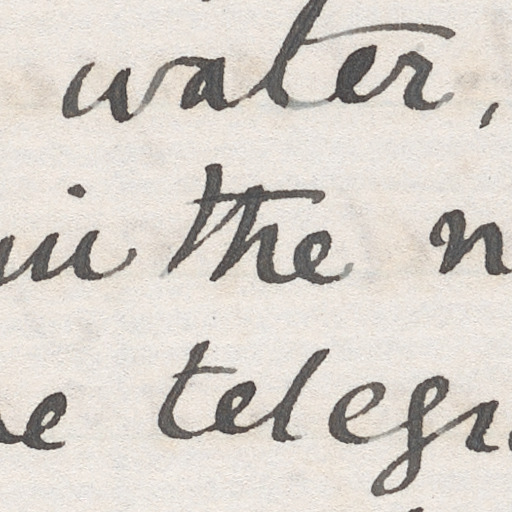 water,
in the n
e telegr